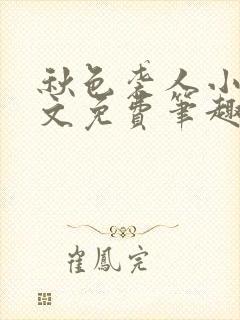 秋色袭人小
文免費筆趣
崔鳳完